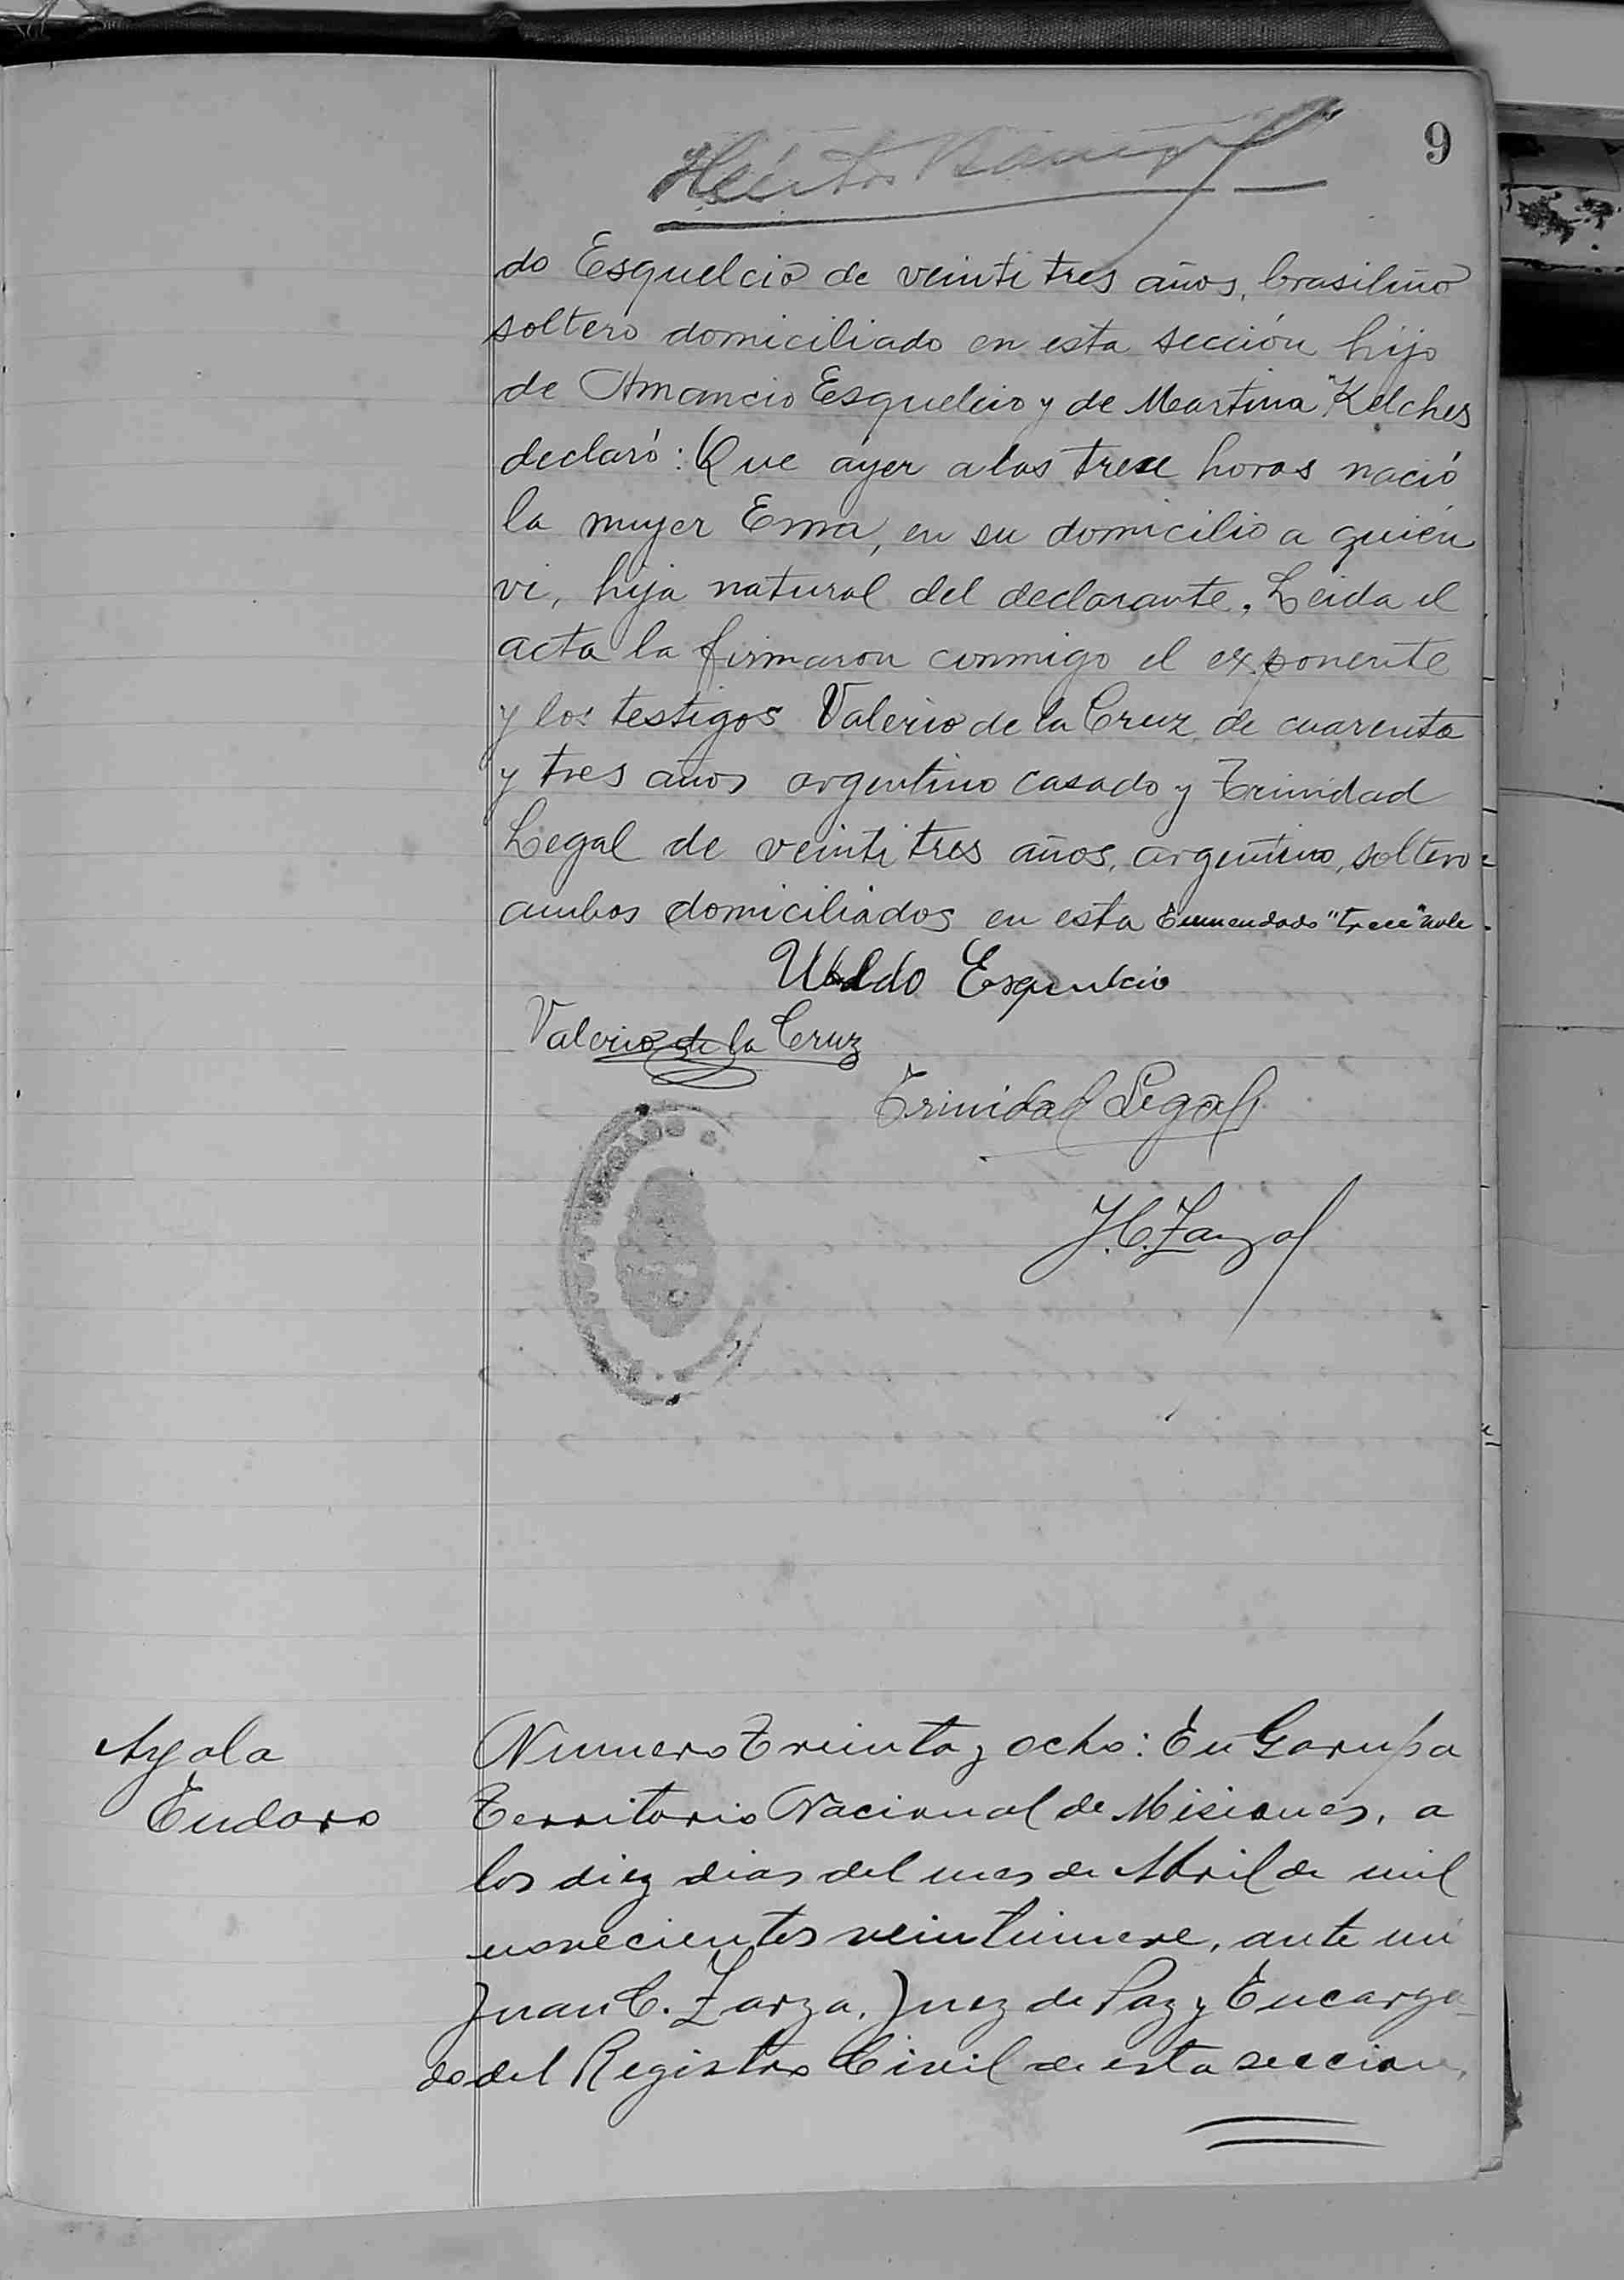 9
Héctor
do Esquelcio de veinti tres años, brasilino
soltero domiciliado en esta sección hijo
de Amancio Esquelcio y de Martina Kelches
declaró: Que ayer a las trece horas nació
la mujer Ema, en su domicilio a quién
vi, hija natural del declarante. Leida el
acta la firmaron conmigo el exponente
y los testigos Valerio de la Cruz de cuarenta
y tres años argentino casado y Trinidad
Legal de veinti tres años, argentino, soltero
ambos domiciliados en esta Enmendado "trece" vale.
Ubaldo Esquelcio
Valerio de la Cruz
Trinidad Legal
J. C. Zarza
Ayala
Eudoro
Numero Treinta y ocho: En Garupa
Territorio Nacional de Misiones, a
los diez dias del mes de Abril de mil
novecientos veintinueve, ante mi
Juan C. Zarza, Juez de Paz y Encarga-
do del Registro Civil de esta seccion,